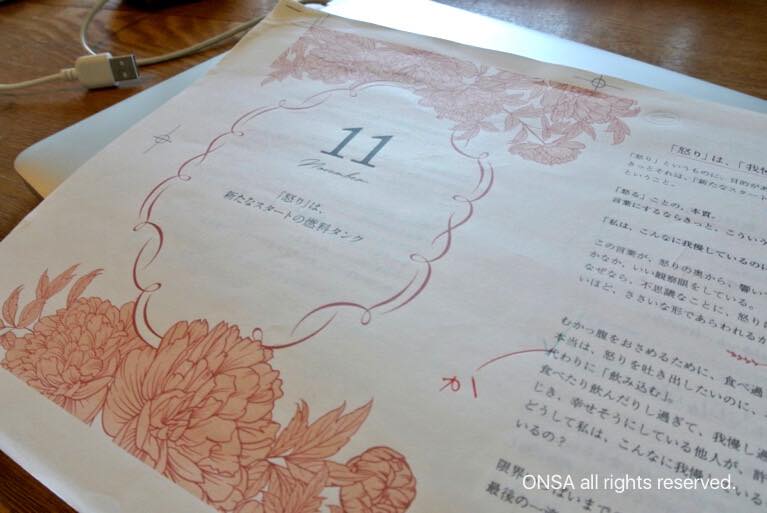 11
November
「怒り」は、
新たなスタートの燃料タンク
「怒り」は、「我
「怒り」というものに、目的が
きっとそれは、「新たなスタート
ということ。
「怒る」ことの、本質。
言葉にするならきっと、こういう
「私は、こんなに我慢しているのに
この言葉が、怒りの奥から、響い
かなか、いい観察眼をしている。
なぜなら、不思議なことに、怒りは
いほど、ささいな形であらわれるか
むかっ腹をおさめるために、食べ過
本当は、怒りを吐き出したいのに、
代わりに「飲み込む」。
食べたり飲んだりし過ぎて、我慢し過
じき、幸せそうにしている他人が、許
どうして私は、こんなに我慢している
いるの?
限界いっぱいまで
最後の一
カ
ONSA all rights reserved.